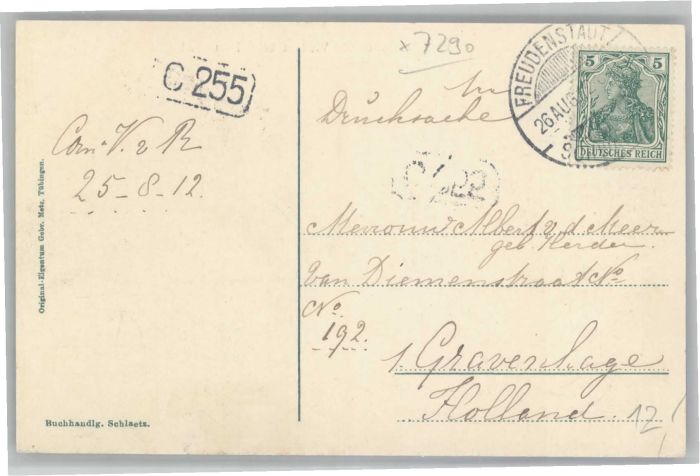 x 7290
C 255
Drucksache
FREUDENSTADT
26 AUG
5 5
DEUTSCHES REICH
25-8-12.
Mevrouw Albert v. d. Meer
geb. Herder.
van Diemenstraat No
No
192.
's Gravenhage
Holland.
12
Original-Eigentum Gebr. Metz, Tübingen.
Buchhandlg. Schlaetz.